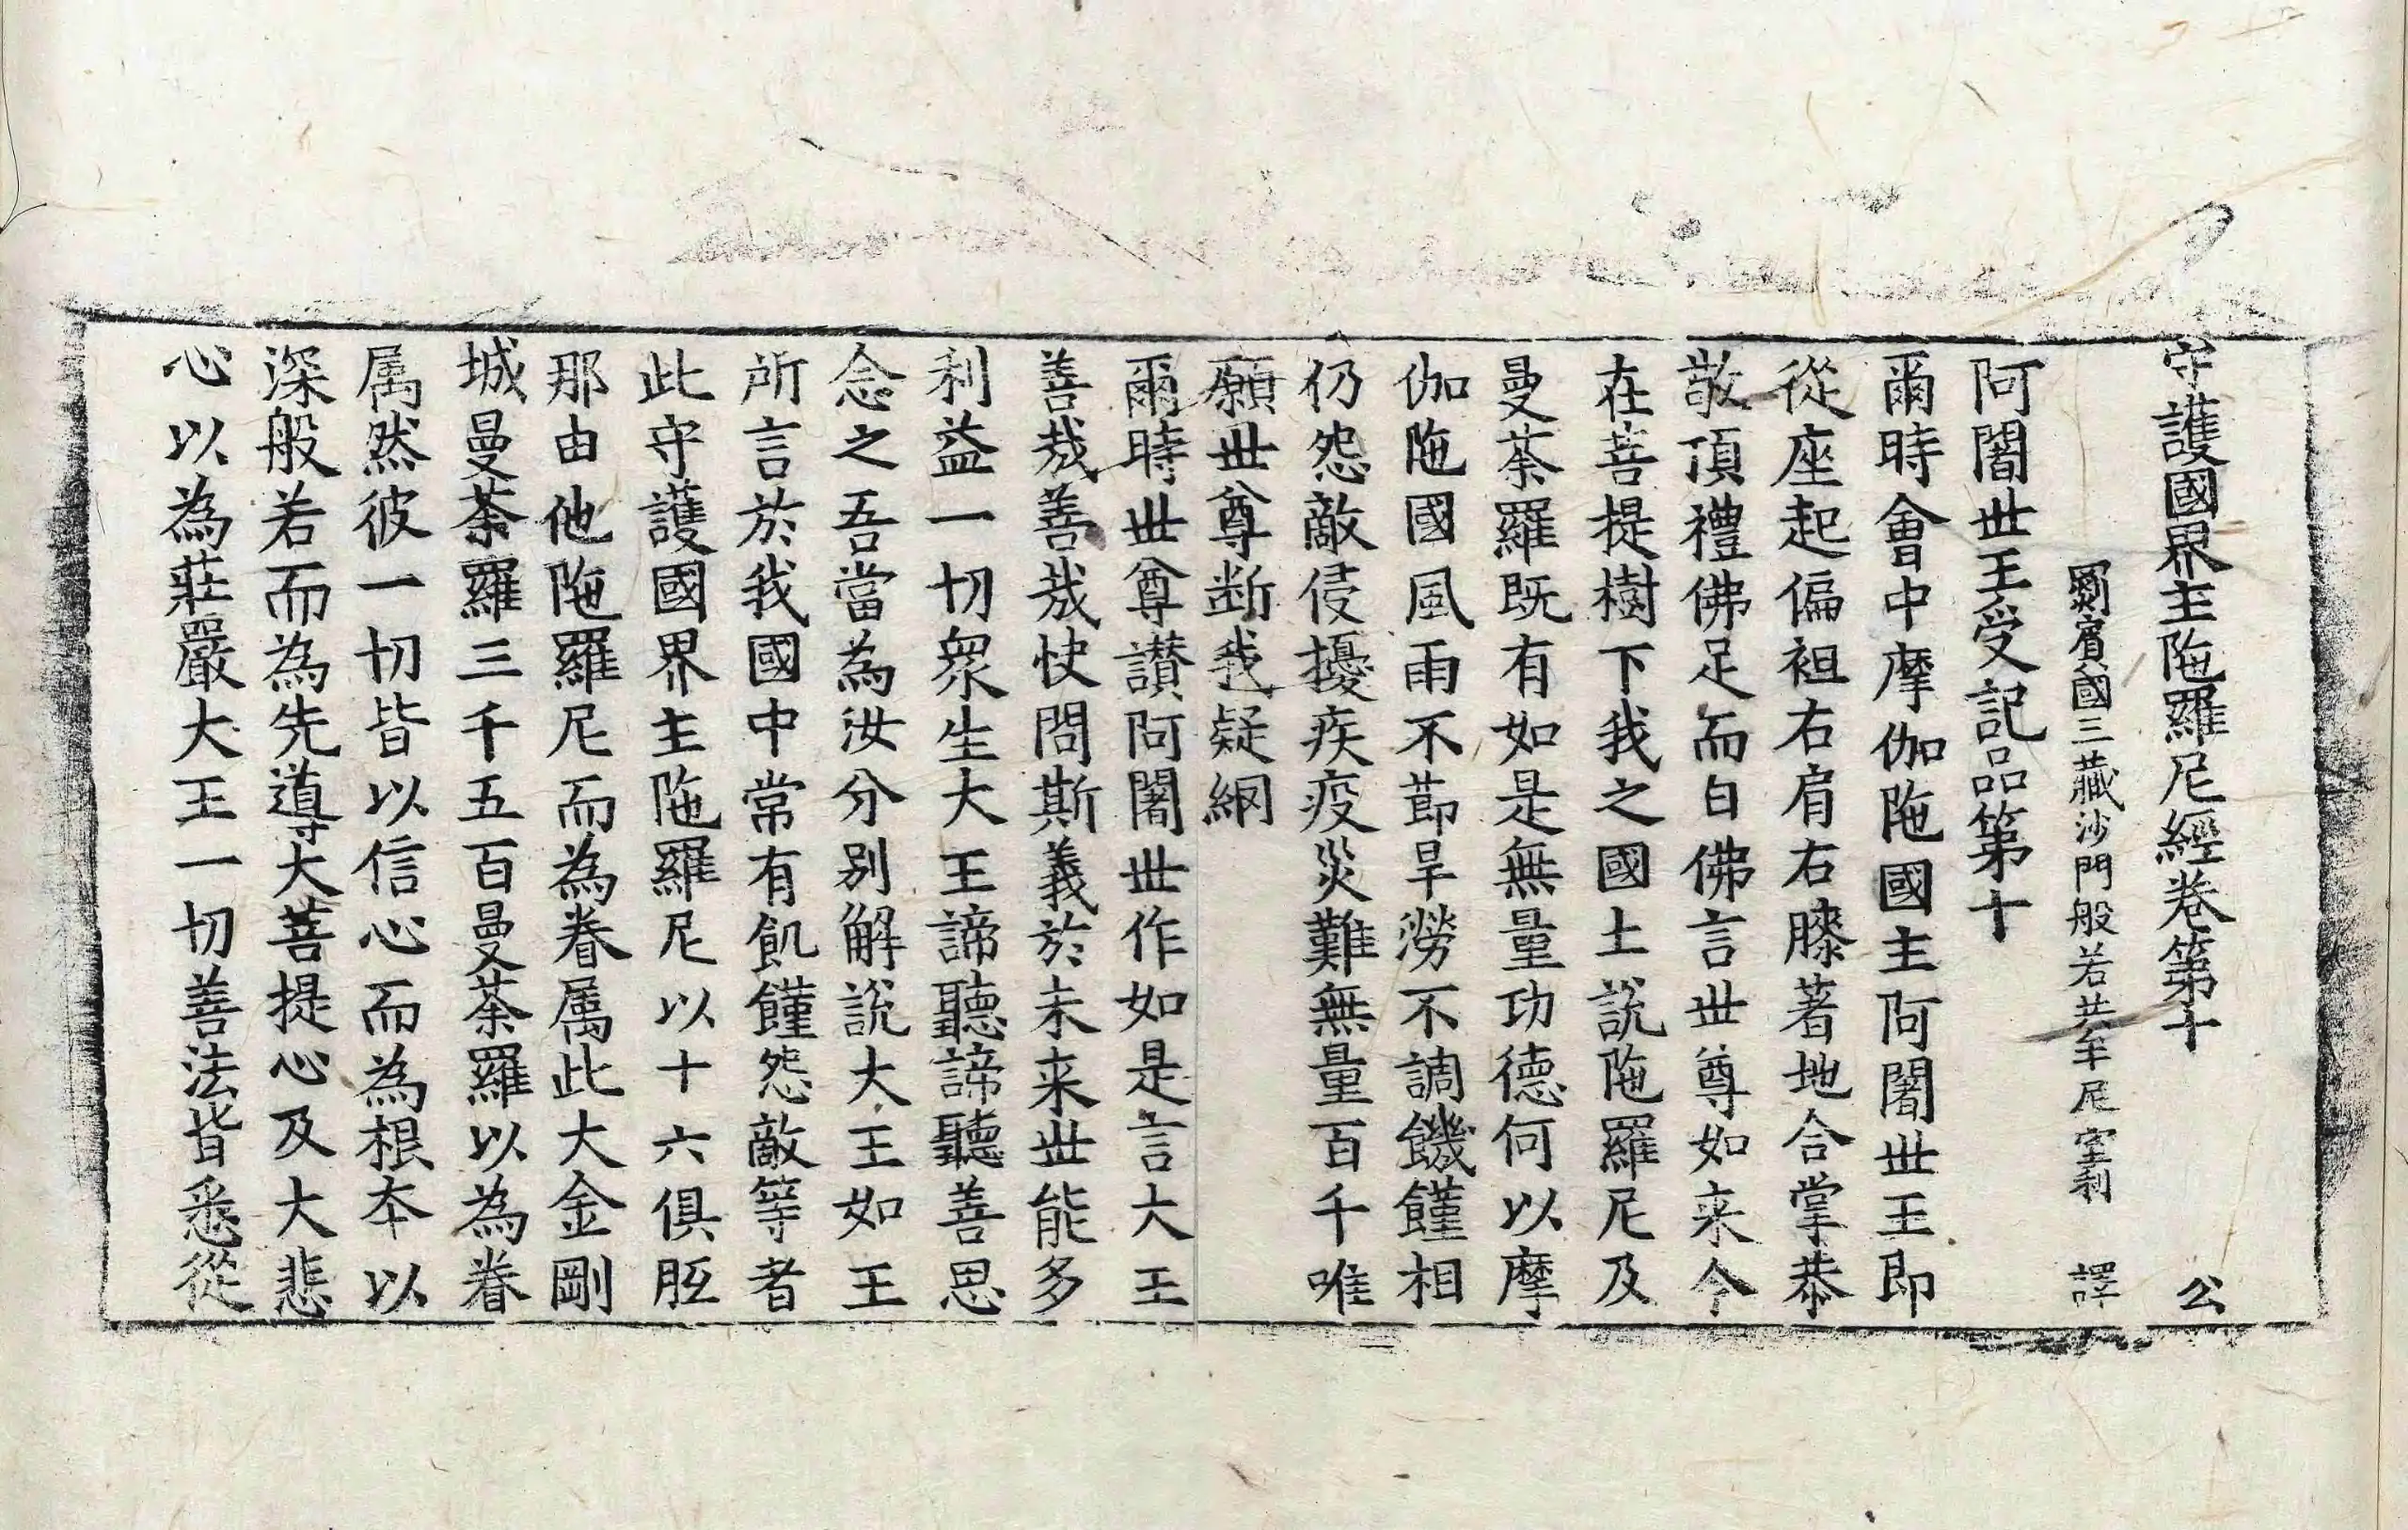 守護國界主陁羅尼經卷第十 公
罽賓國三藏沙門般若共牟尼室利 譯
阿闍世王受記品第十
爾時會中摩伽陁國主阿闍世王即
從座起偏袒右肩右膝著地合掌恭
敬頂禮佛足而白佛言世尊如来今
在菩提樹下我之國土說陁羅尼及
曼荼羅既有如是無量功德何以摩
伽陁國風雨不節旱澇不調饑饉相
仍怨敵侵擾疾疫災難無量百千唯
願世尊断我疑網
爾時世尊讃阿闍世作如是言大王
善哉善哉快問斯義於未来世能多
利益一切衆生大王諦聽諦聽善思
念之吾當為汝分別解說大王如王
所言於我國中常有飢饉怨敵等者
此守護國界主陁羅尼以十六俱胝
那由他陁羅尼而為眷属此大金剛
城曼荼羅三千五百曼荼羅以為眷
属然彼一切皆以信心而為根本以
深般若而為先導大菩提心及大悲
心以為莊嚴大王一切善法皆悉從